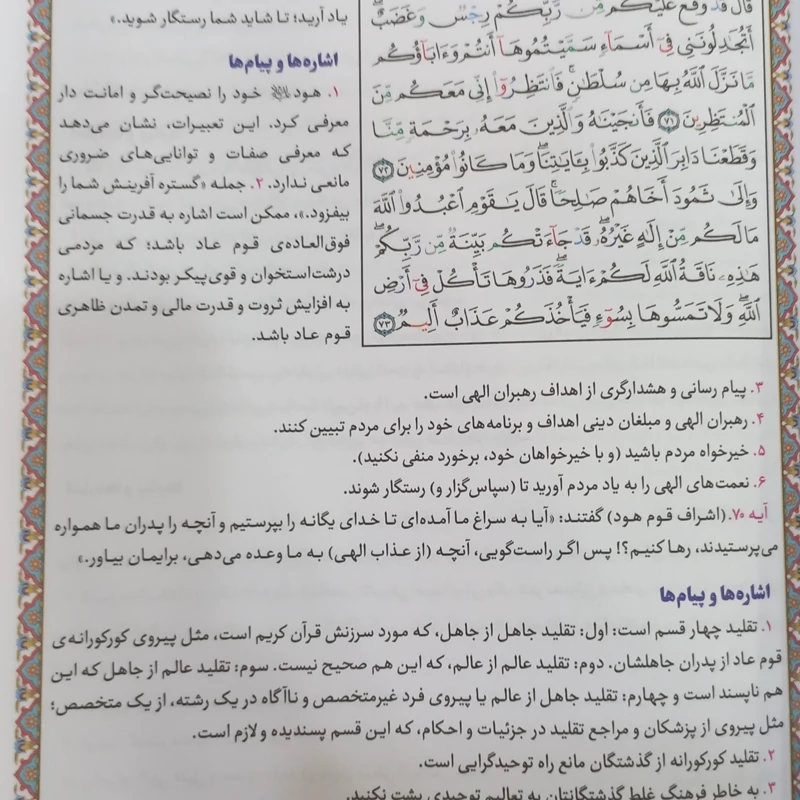 قَالَ قَدْ وَقَعَ عَلَيْكُم مِّن رَّبِّكُمْ رِجْسٌ وَغَضَبٌ
أَتُجَٰدِلُونَنِي فِيٓ أَسْمَآءٖ سَمَّيْتُمُوهَآ أَنتُمْ وَءَابَآؤُكُم
مَّا نَزَّلَ ٱللَّهُ بِهَا مِن سُلْطَٰنٖۚ فَٱنتَظِرُوٓا۟ إِنِّي مَعَكُم مِّنَ
ٱلْمُنتَظِرِينَ ﴿۷۱﴾ فَأَنجَيْنَٰهُ وَٱلَّذِينَ مَعَهُۥ بِرَحْمَةٖ مِّنَّا
وَقَطَعْنَا دَابِرَ ٱلَّذِينَ كَذَّبُوا۟ بِـَٔايَٰتِنَاۖ وَمَا كَانُوا۟ مُؤْمِنِينَ ﴿۷۲﴾
وَإِلَىٰ ثَمُودَ أَخَاهُمْ صَٰلِحٗاۚ قَالَ يَٰقَوْمِ ٱعْبُدُوا۟ ٱللَّهَ
مَا لَكُم مِّنْ إِلَٰهٍ غَيْرُهُۥۖ قَدْ جَآءَتْكُم بَيِّنَةٞ مِّن رَّبِّكُمْۖ
هَٰذِهِۦ نَاقَةُ ٱللَّهِ لَكُمْ ءَايَةٗۖ فَذَرُوهَا تَأْكُلْ فِيٓ أَرْضِ
ٱللَّهِۖ وَلَا تَمَسُّوهَا بِسُوٓءٖ فَيَأْخُذَكُمْ عَذَابٌ أَلِيمٞ ﴿۷۳﴾
یاد آرید؛ تا شاید شما رستگار شوید.»
اشاره‌ها و پیام‌ها
۱. هود خود را نصیحت‌گر و امانت دار
معرفی کرد. این تعبیرات، نشان می‌دهد
که معرفی صفات و توانایی‌های ضروری
مانعی ندارد. ۲. جمله «گستره آفرینش شما را
بیفزود.»، ممکن است اشاره به قدرت جسمانی
فوق‌العاده‌ی قوم عاد باشد؛ که مردمی
درشت‌استخوان و قوی‌پیکر بودند. و یا اشاره
به افزایش ثروت و قدرت مالی و تمدن ظاهری
قوم عاد باشد.
۳. پیام رسانی و هشدارگری از اهداف رهبران الهی است.
۴. رهبران الهی و مبلغان دینی اهداف و برنامه‌های خود را برای مردم تبیین کنند.
۵. خیرخواه مردم باشید (و با خیرخواهان خود، برخورد منفی نکنید).
۶. نعمت‌های الهی را به یاد مردم آورید تا (سپاس‌گزار و) رستگار شوند.
آیه ۷۰. (اشراف قوم هود) گفتند: «آیا به سراغ ما آمده‌ای تا خدای یگانه را بپرستیم و آنچه را پدران ما همواره
می‌پرستیدند، رها کنیم؟! پس اگر راست‌گویی، آنچه (از عذاب الهی) به ما وعده می‌دهی، برایمان بیاور.»
اشاره‌ها و پیام‌ها
۱. تقلید چهار قسم است: اول: تقلید جاهل از جاهل، که مورد سرزنش قرآن کریم است، مثل پیروی کورکورانه‌ی
قوم عاد از پدران جاهلشان. دوم: تقلید عالم از عالم، که این هم صحیح نیست. سوم: تقلید عالم از جاهل که این
هم ناپسند است و چهارم: تقلید جاهل از عالم یا پیروی فرد غیرمتخصص و ناآگاه در یک رشته، از یک متخصص؛
مثل پیروی از پزشکان و مراجع تقلید در جزئیات و احکام، که این قسم پسندیده و لازم است.
۲. تقلید کورکورانه از گذشتگان مانع راه توحیدگرایی است.
۳. به خاطر فرهنگ غلط گذشتگانتان به تعالیم توحیدی پشت نکنید.